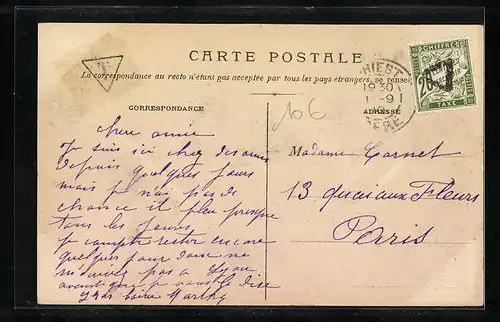 CARTE POSTALE
La correspondance au recto n'étant pas acceptée par tous les pays étrangers, se rensei
CORRESPONDANCE
ADRESSE
CHIFFRE
20
TAXE
HIEST
1930
1 -9
ERE
106
Chère amie
Je suis ici chez des amis
depuis quelques jours
mais je n'ai pas de
chance il pleut presque
tous les jours
Je compte rester encore
quelques jours donc ne
m'écrivez pas a Lyon
avant que je vous le dise
Marthy
Madame Cornet
13 quai aux Fleurs
Paris